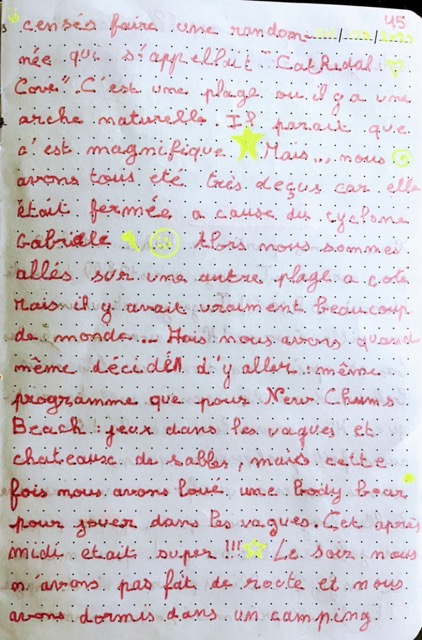 45
censés faire une randon
née qui s'appellait "Cathedal
Cove". C'est une plage ou il y a une
arche naturelle. Il parait que
c'est magnifique Mais... nous
avons tous été très deçus car elle
était fermée a cause du cyclone
Gabrielle Alors nous sommes
allés sur une autre plage a coté
mais il y avait vraiment beaucoup
de monde... Mais nous avons quand
même décidéd d'y aller : même
programme que pour New Chums
Beach : jeux dans les vagues et
chateaux de sables, mais cette
fois nous avons loué une body boar
pour jouer dans les vagues. Cet après
midi etait super !!! Le soir nous
n'avons pas fait de route et nous
avons dormis dans un camping.